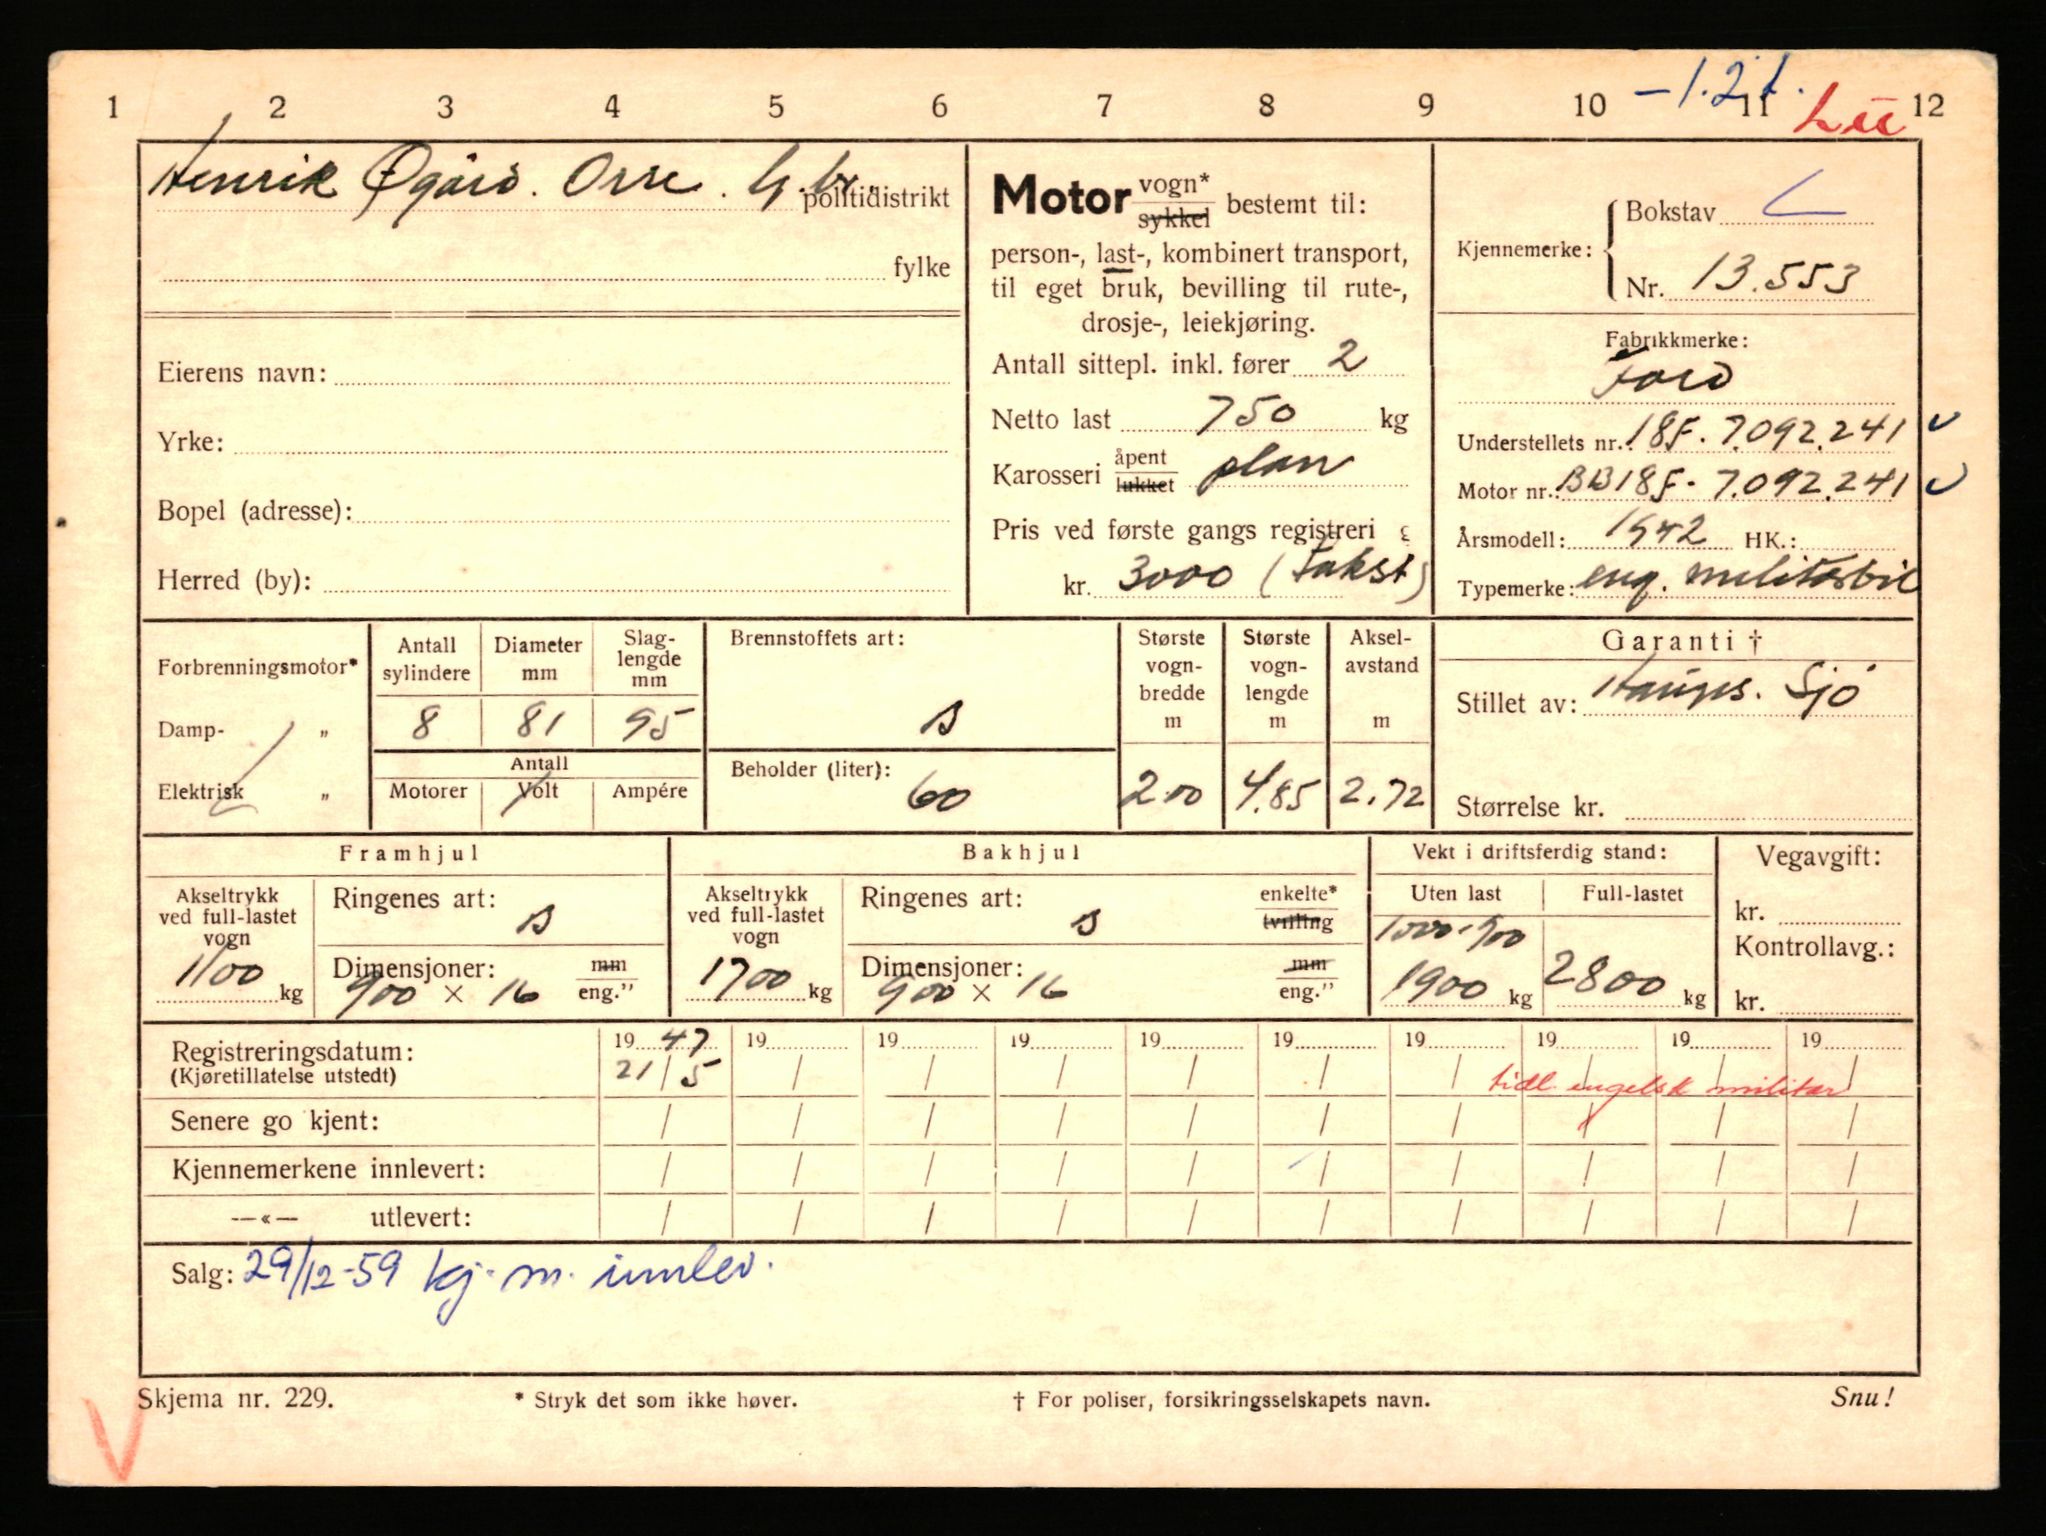 1 2 3 4 5 6 7 8 9 10 11 12
-1.2t.
Henrik Øgård. Orre. G.br. politidistrikt
fylke
Eierens navn:
Yrke:
Bopel (adresse):
Herred (by):
Motor vogn* sykkel bestemt til:
person-, last-, kombinert transport,
til eget bruk, bevilling til rute-,
drosje-, leiekjøring.
Antall sittepl. inkl. fører 2
Netto last 750 kg
Karosseri åpent lukket plan
Pris ved første gangs registreri g
kr. 3000 (takst)
Kjennemerke: Bokstav L
Nr. 13.553
Fabrikkmerke:
Ford
Understellets nr. 18F. 7.092.241
Motor nr.: BB18F- 7.092.241
Årsmodell: 1942 HK.:
Typemerke: eng. militærbil
Forbrenningsmotor*
Damp- „
Elektrisk „
Antall sylindere
8
Diameter mm
81
Slag-lengde mm
95
Antall
Motorer Volt Ampére
Brennstoffets art:
B
Beholder (liter):
60
Største vogn-bredde m
2.00
Største vogn-lengde m
4.85
Aksel-avstand m
2.72
Garanti †
Stillet av: Sjö
Størrelse kr.
Framhjul
Akseltrykk
ved full-lastet
vogn
1100 kg
Ringenes art:
B
Dimensjoner: mm
900 × 16 eng."
Bakhjul
Akseltrykk
ved full-lastet
vogn
1700 kg
Ringenes art: enkelte*
B tvilling
Dimensjoner: mm
900 × 16 eng."
Vekt i driftsferdig stand:
Uten last Full-lastet
1000-900
1900 kg 2800 kg
Vegavgift:
kr.
Kontrollavg.:
kr.
Registreringsdatum: 19 47 19 19 19 19 19 19 19 19 19
(Kjøretillatelse utstedt) 21/5 / / / / / / / / /
tidl. engelsk militær
Senere go kjent: / / / / / / / / / /
Kjennemerkene innlevert: / / / / / / / / / /
—«— utlevert: / / / / / / / / / /
Salg: 29/12-59 kj. m. innlev.
Skjema nr. 229. * Stryk det som ikke høver. † For poliser, forsikringsselskapets navn. Snu!
V